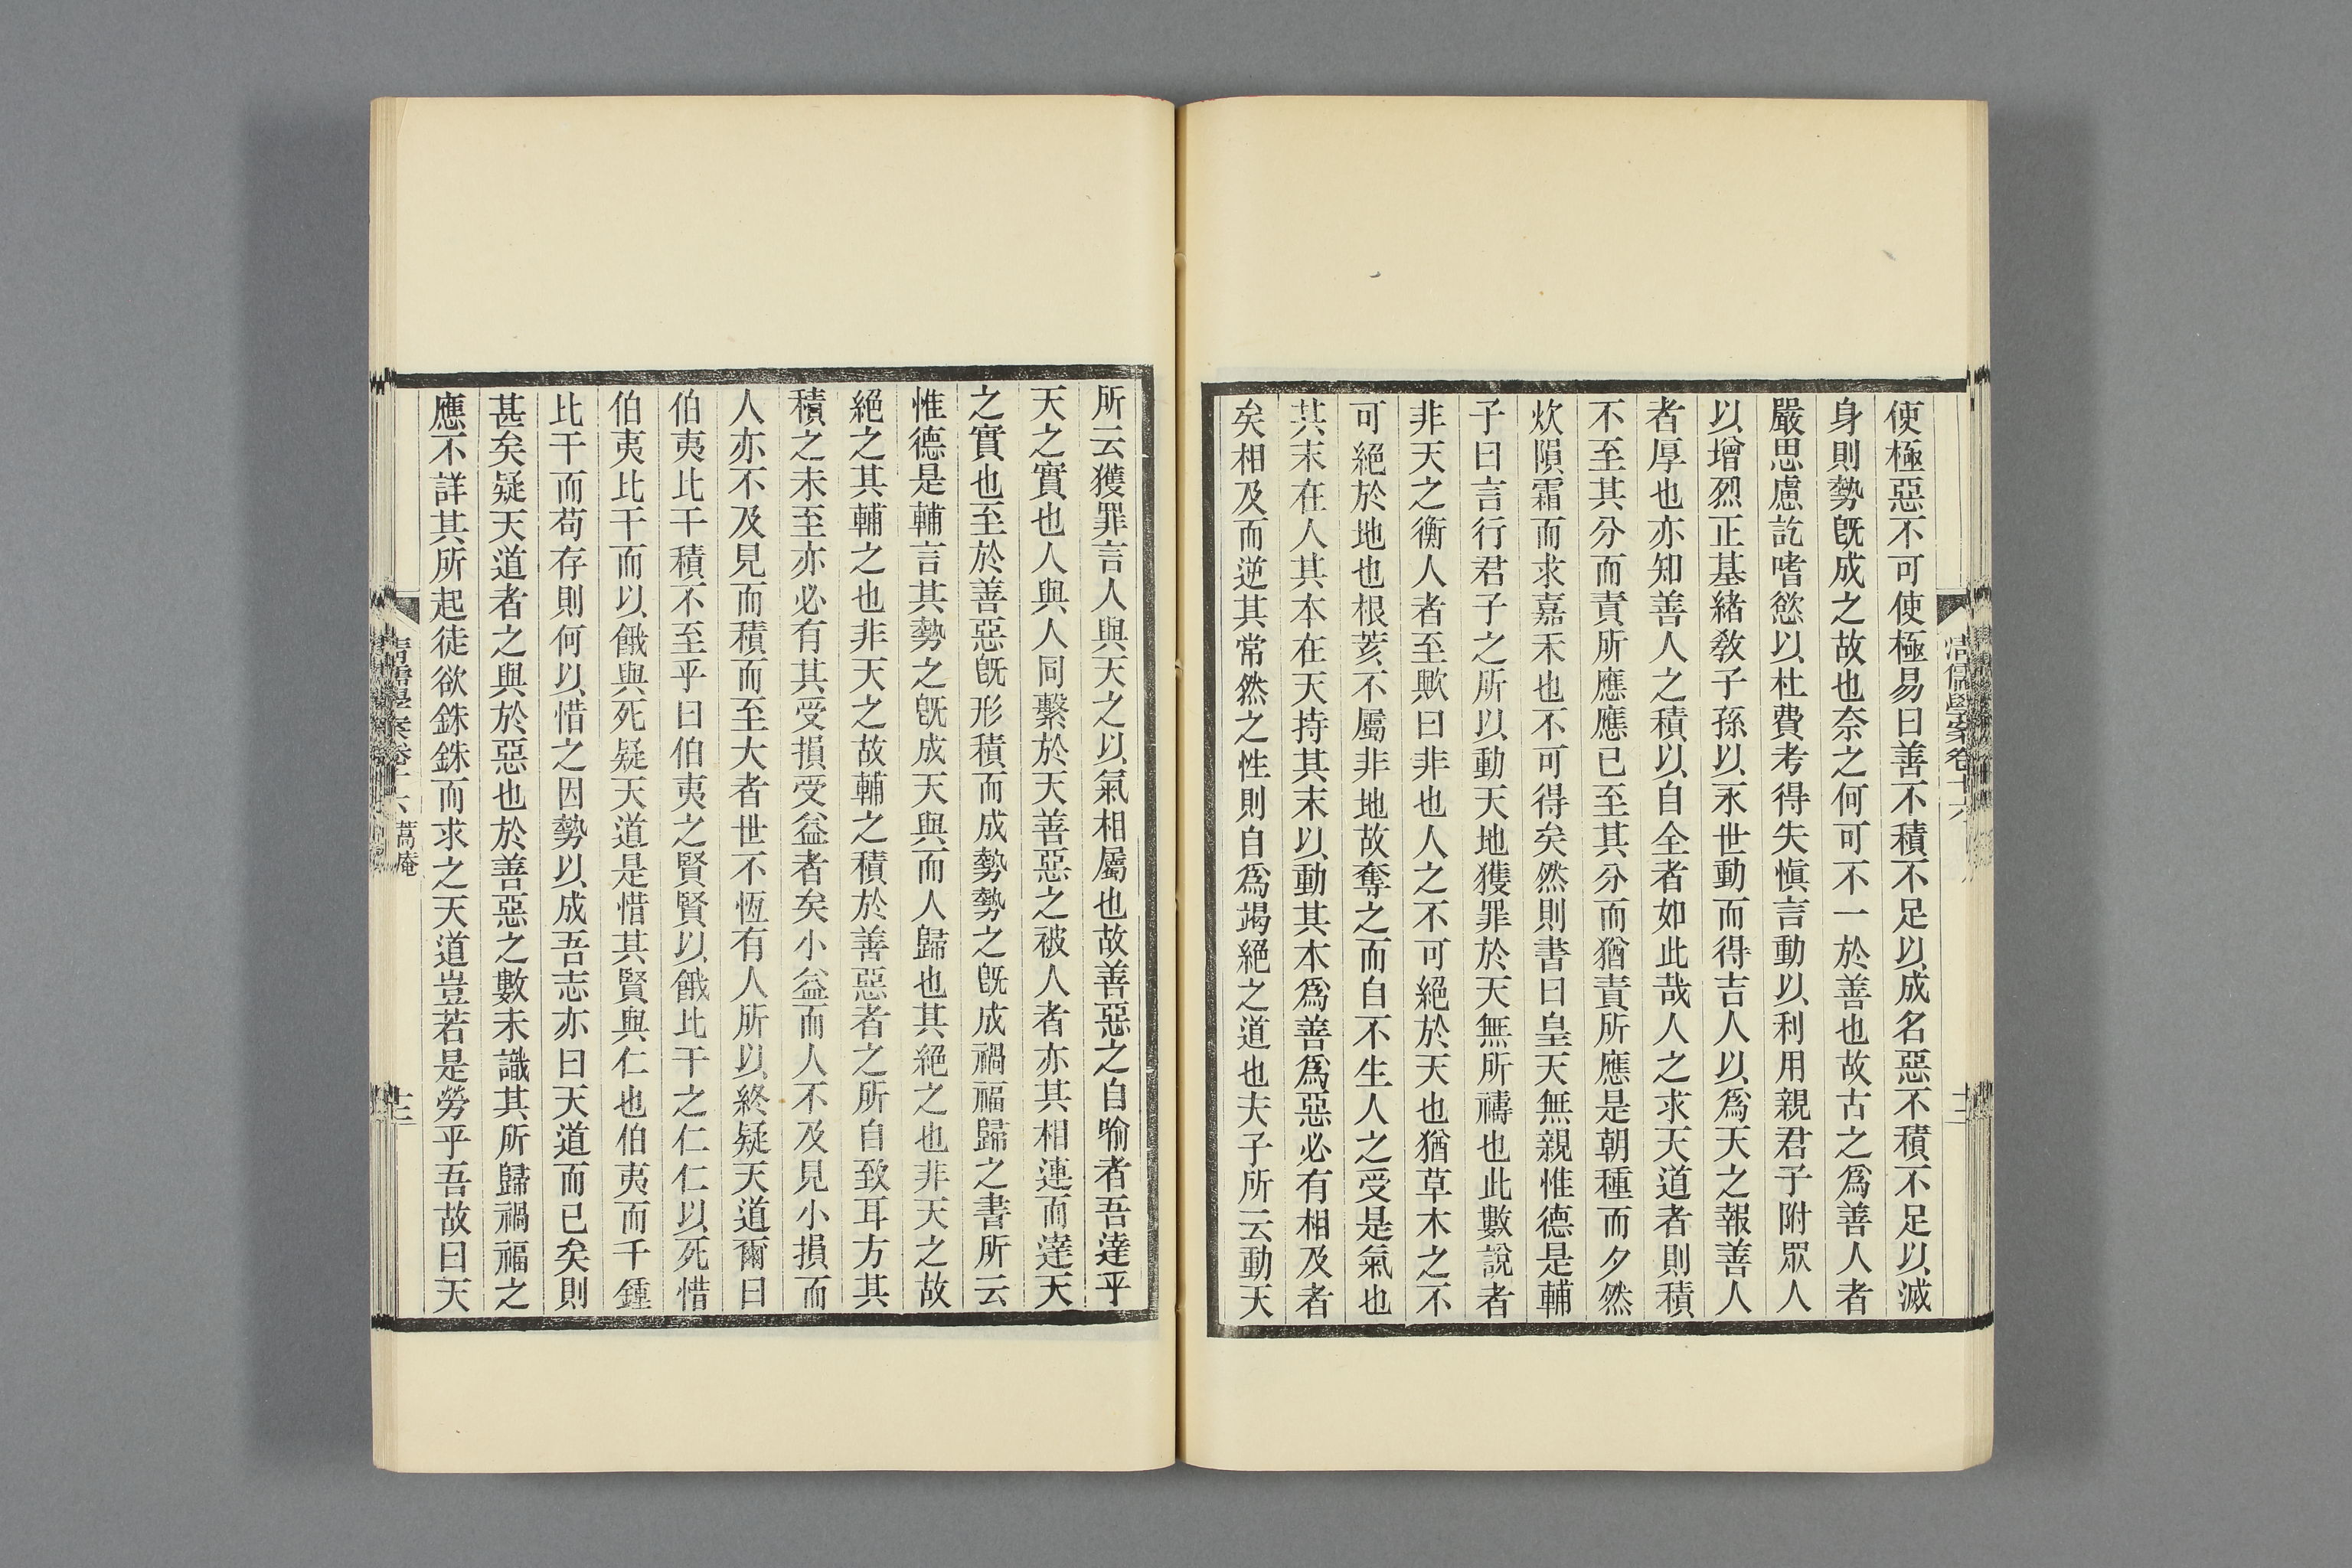 清儒學案卷十六
十二
使極惡不可使極易曰善不積不足以成名惡不積不足以滅
身則勢旣成之故也奈之何可不一於善也故古之爲善人者
嚴思慮訖嗜慾以杜費考得失愼言動以利用親君子附眾人
以增烈正基緒敎子孫以永世動而得吉人以爲天之報善人
者厚也亦知善人之積以自全者如此哉人之求天道者則積
不至其分而責所應應已至其分而猶責所應是朝種而夕然
炊隕霜而求嘉禾也不可得矣然則書曰皇天無親惟德是輔
子曰言行君子之所以動天地獲罪於天無所禱也此數說者
非天之衡人者至歟曰非也人之不可絕於天也猶草木之不
可絕於地也根荄不屬非地故奪之而自不生人之受是氣也
其末在人其本在天持其末以動其本爲善爲惡必有相及者
矣相及而逆其常然之性則自爲竭絕之道也夫子所云動天
所云獲罪言人與天之以氣相屬也故善惡之自喻者吾達乎
天之實也人與人同繫於天善惡之被人者亦其相連而達天
之實也至於善惡旣形積而成勢勢之旣成禍福歸之書所云
惟德是輔言其勢之旣成天與而人歸也其絕之也非天之故
絕之其輔之也非天之故輔之積於善惡者之所自致耳方其
積之未至亦必有其受損受益者矣小益而人不及見小損而
人亦不及見而積而至大者世不恆有人所以終疑天道爾曰
伯夷比干積不至乎曰伯夷之賢賢以餓比干之仁仁以死惜
伯夷比干而以餓與死疑天道是惜其賢與仁也伯夷而千鍾
比干而苟存則何以惜之因勢以成吾志亦曰天道而已矣則
甚矣疑天道者之與於惡也於善惡之數未識其所歸禍福之
應不詳其所起徒欲銖銖而求之天道豈若是勞乎吾故曰天
清儒學案卷十六 蒿庵